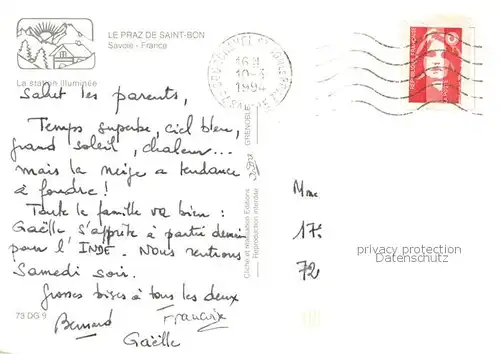 LE PRAZ DE SAINT-BON
Savoie - France
La station illuminée
Salut les parents,
Temps superbe, ciel bleu,
grand soleil, chaleur...
mais la neige a tendance
à fondre!
Toute la famille va bien :
Gaëlle s'apprête à partir demain
pour l'INDE. Nous rentrons
Samedi soir.
Grosses bises à tous les deux
Bernard Françoise
Gaëlle
73 DG 9
16 H
10-3
1994
GRENOBLE
Cliché et réalisation Editions
Reproduction interdite
REPUBLIQUE FRANÇAISE
Mme
17.
72
privacy protection
Datenschutz